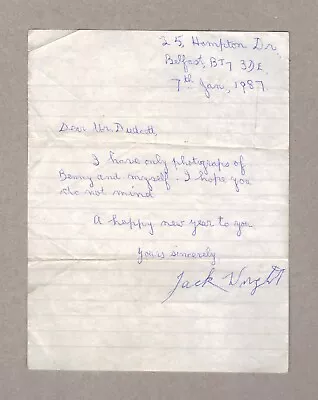 25, Hampton Dr.
Belfast, BT7 3DE
7th Jan, 1987
Dear Mr. Dudcott,
I have only photograps of
Benny and myself. I hope you
do not mind
A happy new year to you
Yours sincerely
Jack Wright